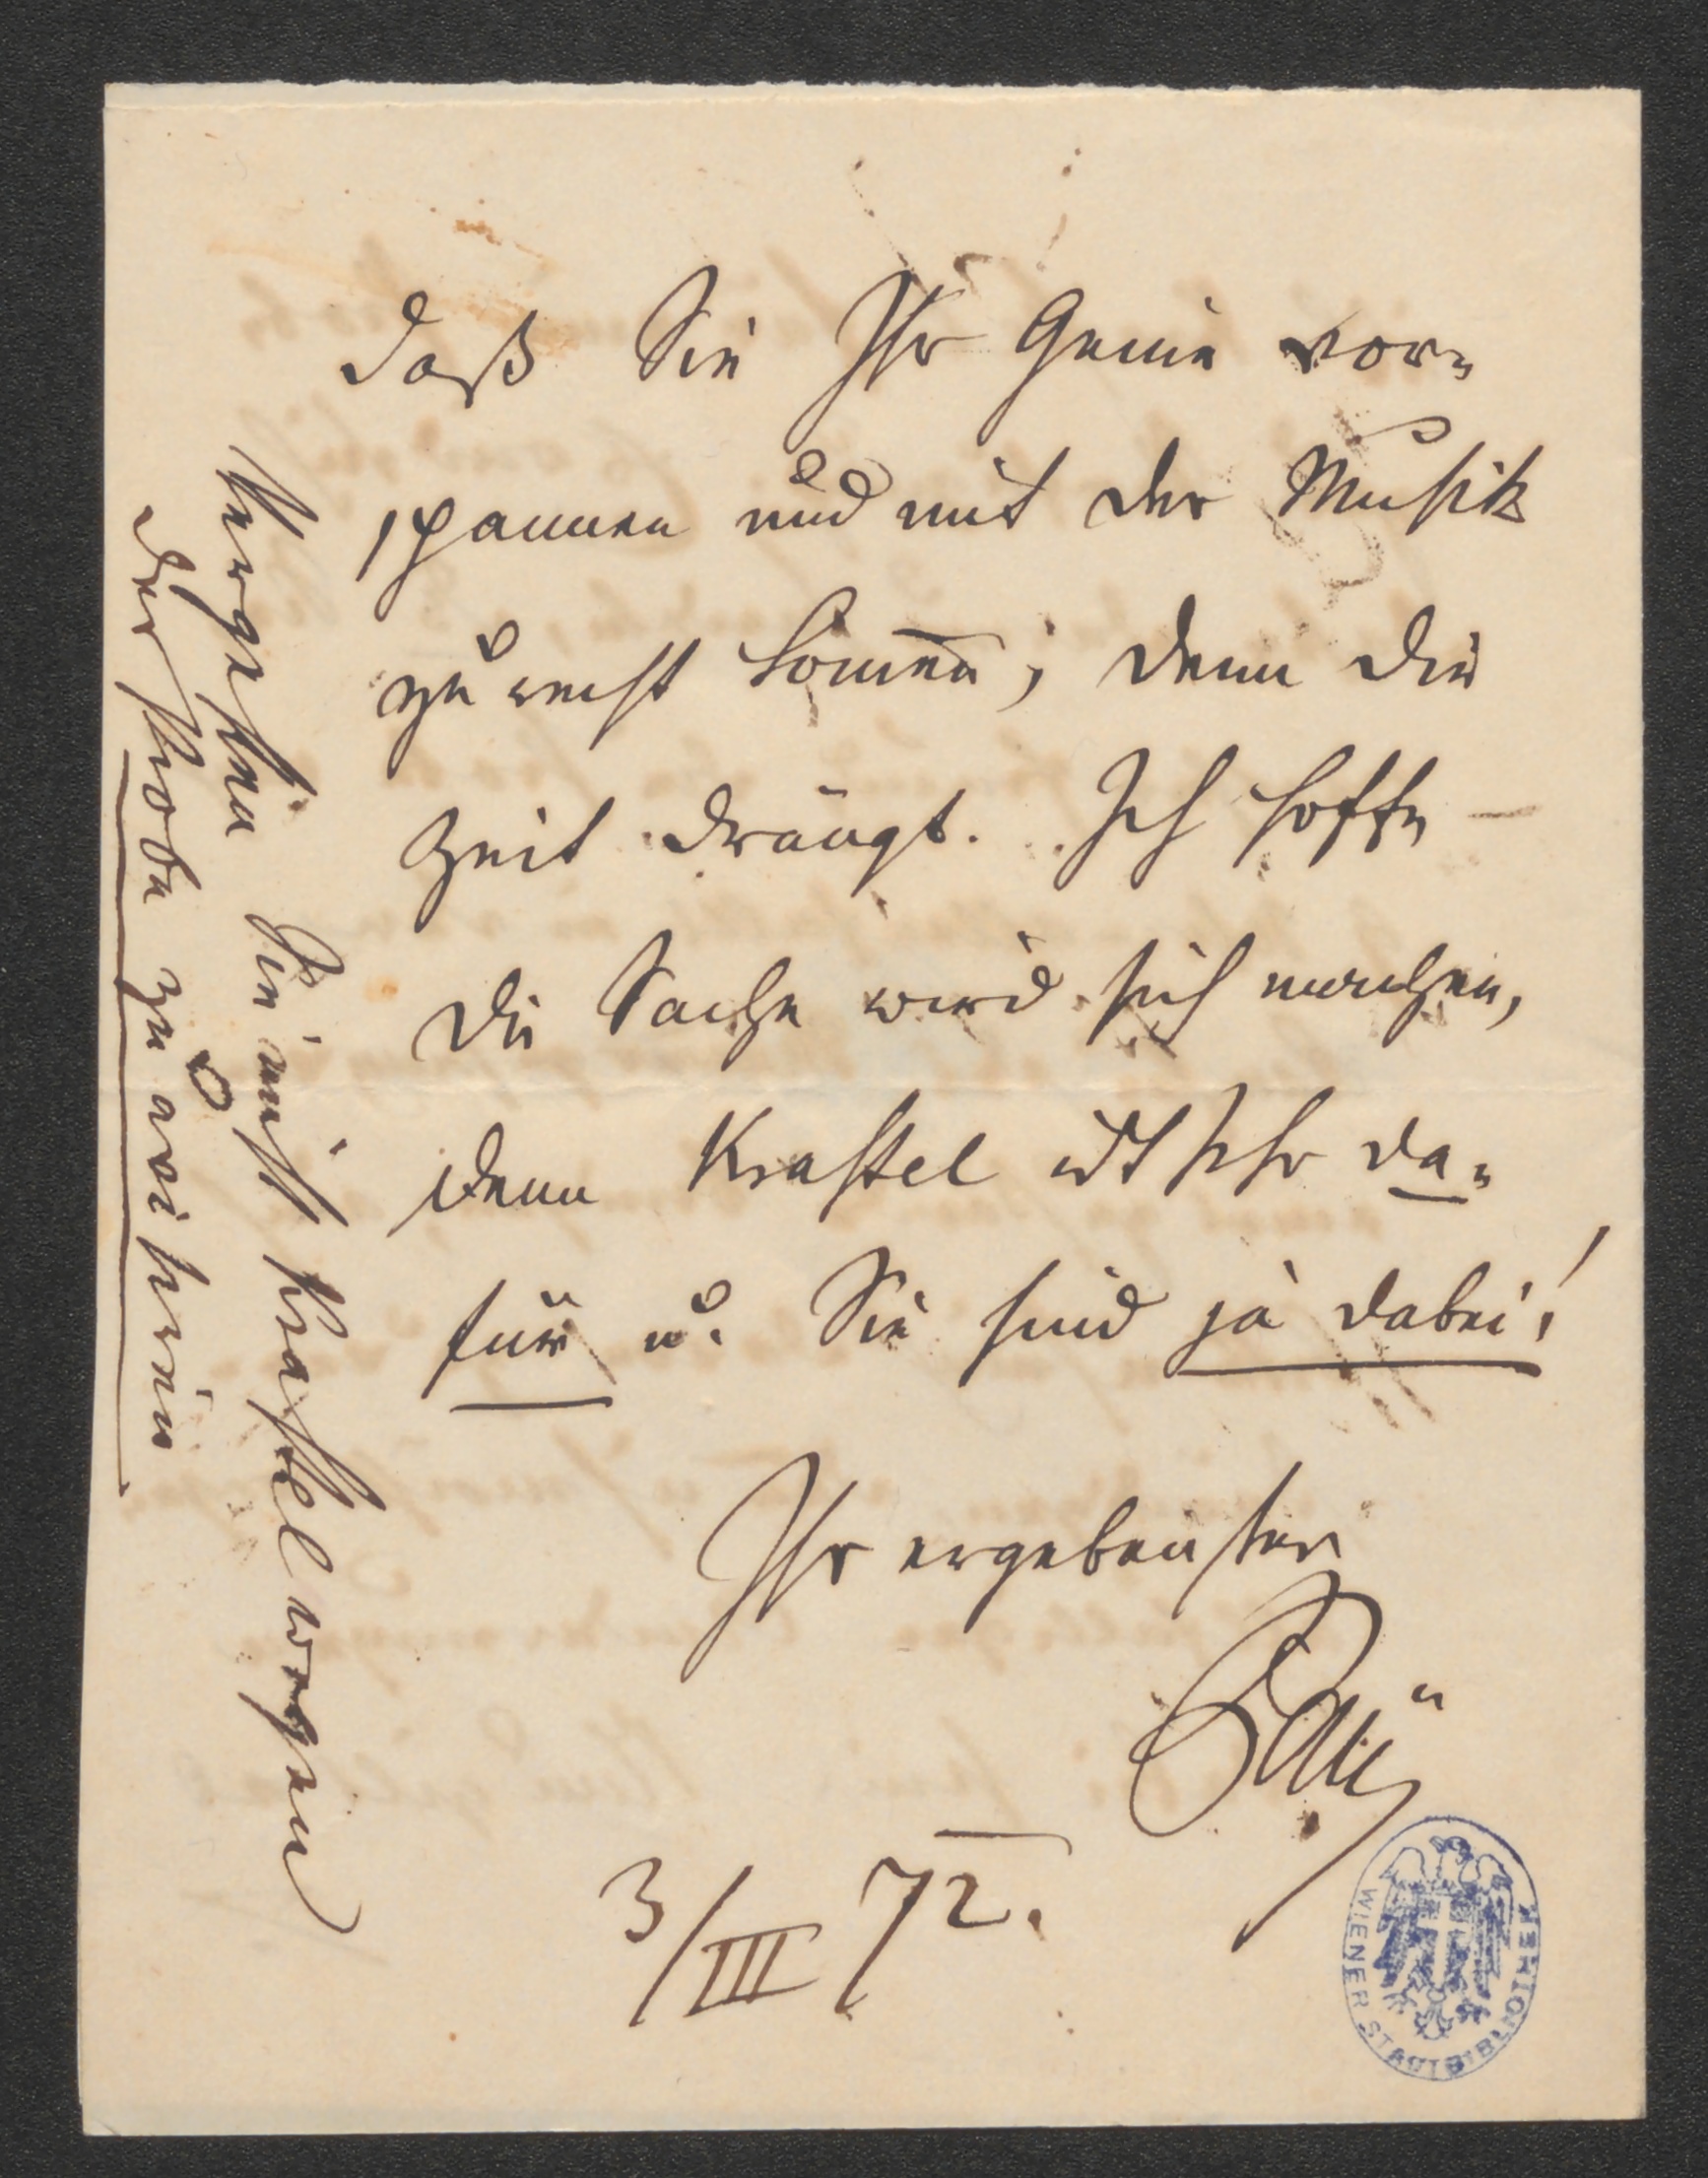 daß Sie Ihr Genie vor-
spannen und mit der Musik
zurecht kom̅en; denn die
Zeit drängt. Ich hoffe –
die Sache wird sich machen,
denn Krastel ist sehr da-
für u. Sie sind ja dabei!
Ihr ergebenster
3/III 72.
Vergessen Sie nicht Krastel wegen
der Probe zu avisiren
WIENER STADTBIBLIOTHEK